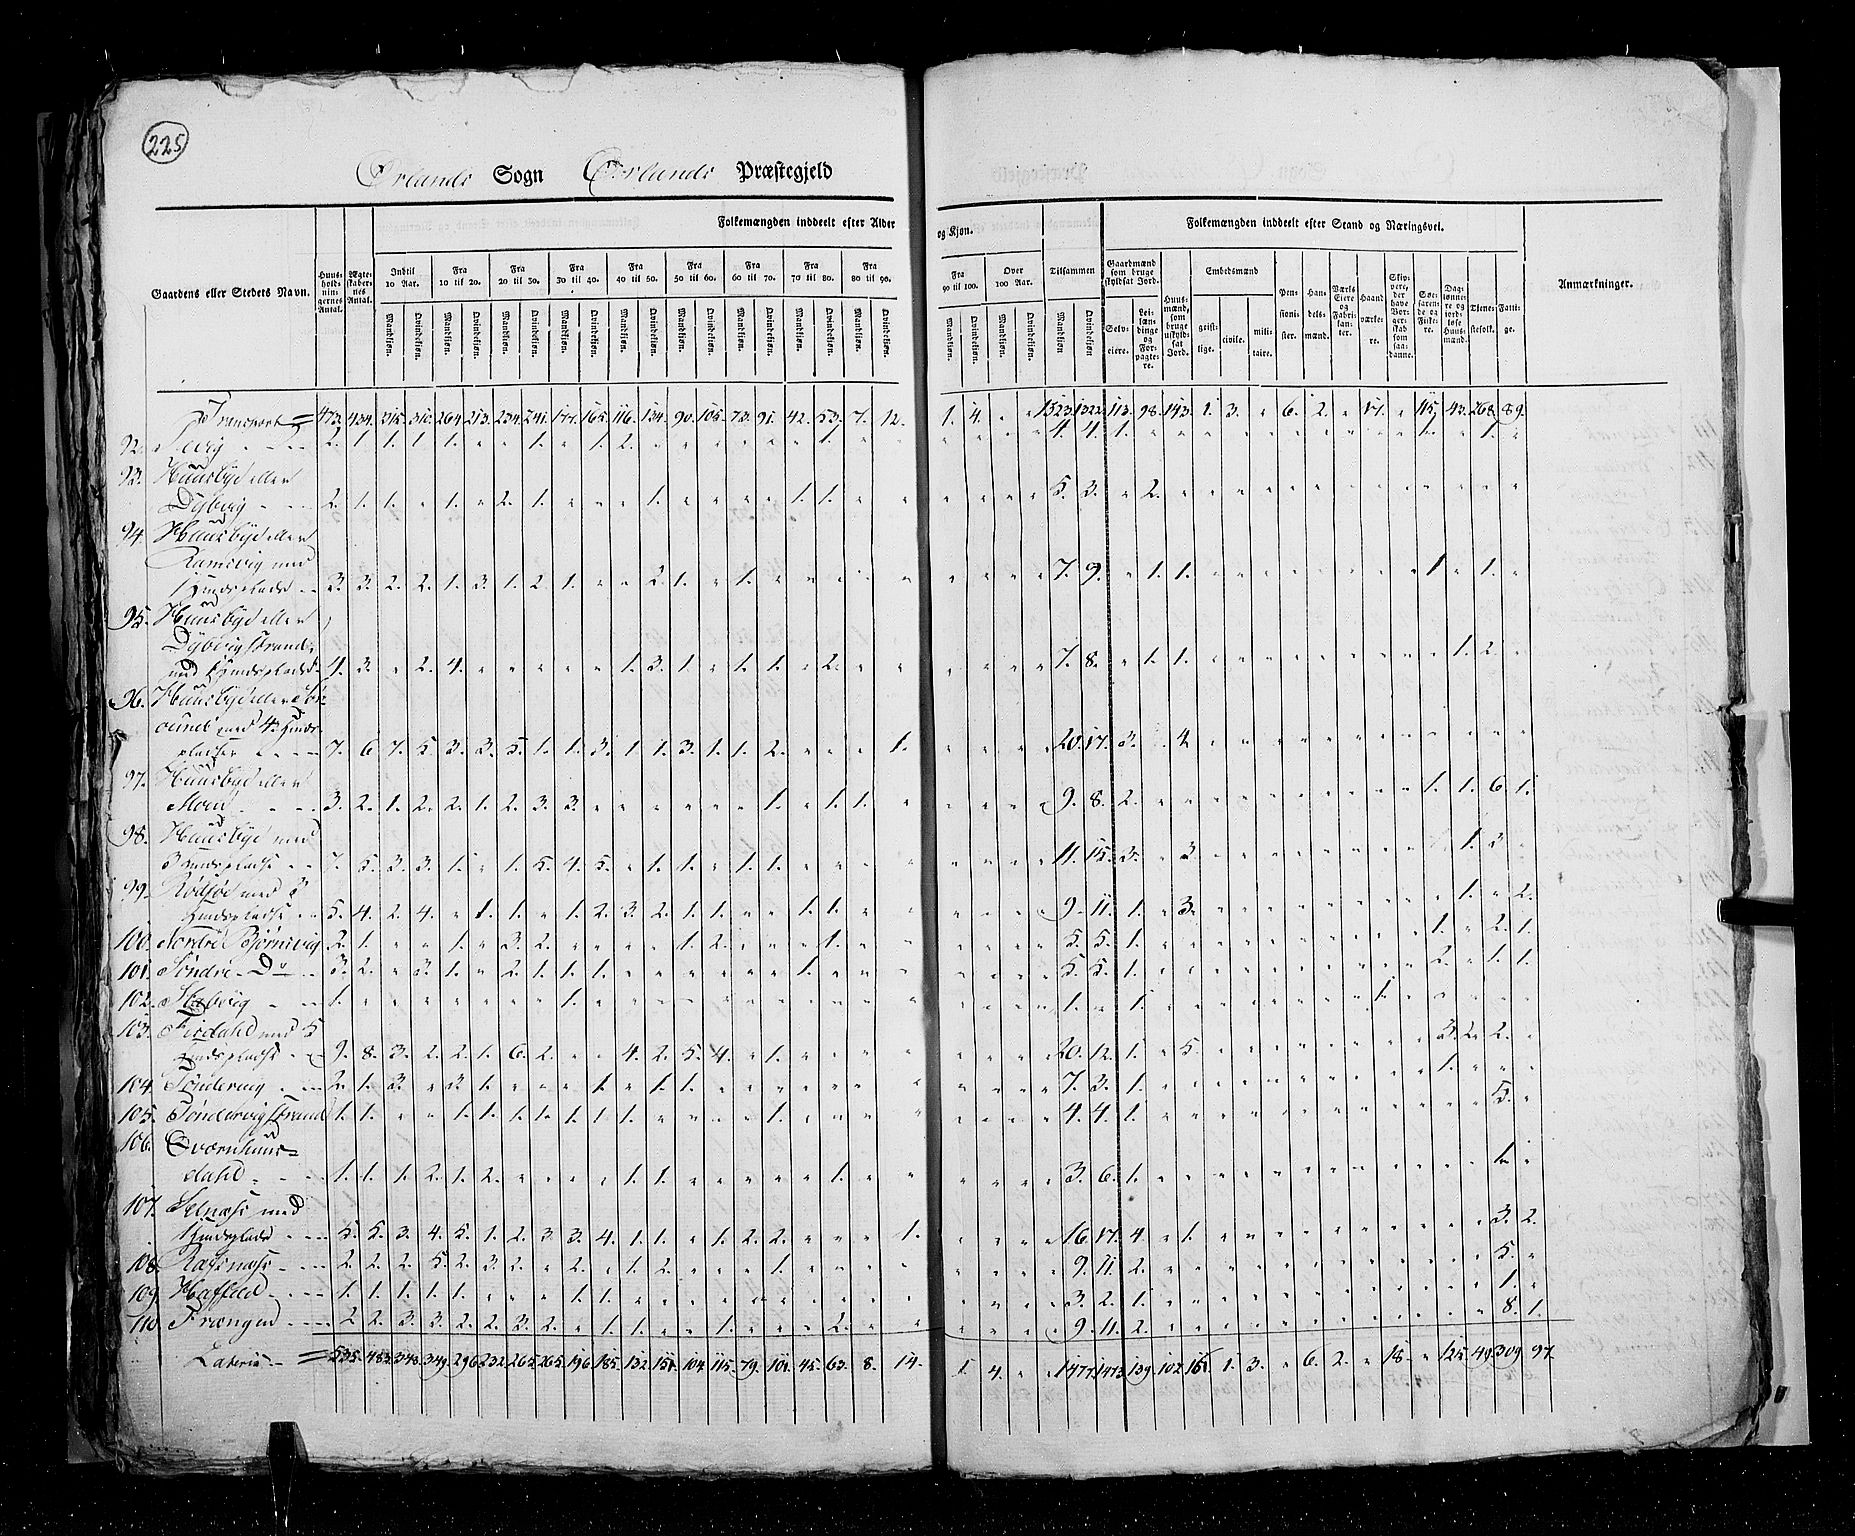 225
Ørlands Sogn Ørlands Præstegjeld
Gaardens eller Stedets Navn.
Huusholdningernes Antal.
Ægteskabernes Antal.
Folkemængden inddeelt efter Alder
og Kjøn.
Indtil 10 Aar. Fra 10 til 20. Fra 20 til 30. Fra 30 til 40. Fra 40 til 50. Fra 50 til 60. Fra 60 til 70. Fra 70 til 80. Fra 80 til 90.
Fra 90 til 100. Over 100 Aar. Tilsammen
Mandkjøn. Qvindekjøn.
Folkemængden inddeelt efter Stand og Næringsvei.
Gaardmænd som bruge skyldsat Jord.
Selveiere. Leilændinge og Forpagtere.
Huusmænd, som bruge uskyldsat Jord.
Embedsmænd
geistlige. civile. militaire.
Pensionister.
Handelsmænd.
Værks Eiere og Fabrikanter.
Haandværkere.
Skippere, der have Borgerskab som saadanne.
Søefarende og Fiskere.
Daglønnere og jordløse Huusmænd.
Tjenestefolk.
Fattige.
Anmærkninger.
Transport = 473. 434. 315. 310. 264. 213. 234. 241. 177. 165. 116. 134. 90. 105. 73. 91. 42. 53. 7. 12. 1. 4. " " 1323. 1322. 113. 98. 143. 1. 3. " 6. 2. " 17. " 115. 43. 268. 89.
92.
93. Huusbye eller
Dyberg 2. 1. 1. " 1. " 2. 1. " " " 1. " " " " 1. 1. " " " " " " 5. 3. " 2.
94. Huusbye eller
Ramsvig med
Huusplads 3. 3. 2. 2. 1. 3. 1. 2. 1. " " 2. 1. " 1. " " " " " " " " " 7. 9. " 1. 1. " " " " " " " " 1 " 1. "
95. Huusbye eller
Dyberg Strand
med Huusplads 4. 3. " 2. 4. " " " " " 1. 3. 1. " 1. 1. " 2. " " " " " " 7. 8. " 1. 1. " " " " " " " " " 1. 2. "
96. Huusbye eller
med 4 Huus-
pladser 7. 6 7. 5. 3. 3. 5. 1. 1. 3. 1 1. 3. 1. 1. 2. " " " 1. " " " " 20. 17. 3. " 4.
97. Huusbye eller
Moen 3. 2. 1. 2. 2. 1. 2. 3. 3. " " " " " " 1. " 1. 1. " " " " " 9. 8. 2. " " " " " " " " " " 1. 1. 6. 1.
98. Huusbye med
3 Huuspladse 7. 5. 3. 3. 1. " 1. 5. 4. 5. " 1. 1. " 1. 1. " " " " " " " " 11. 15. 3. " 3. " " " " " " " " " 1. 3. "
99. Rødsøe med 3
Huuspladse 5. 4. 2. 4. " 1. 1. " 1. 2. 3. 2. 1. 1. " " 1. 1. " " " " " " 9. 11. 1. " 3. " " " " " " " " " 1. " 2.
100. Nordre Bjørnevig 2. 1. " " 1. " 3. 2. " " " " 1. 2. " " " 1. " " " " " " 5. 5. 1. " " " " " " " " " " 1. " 2. 1.
101. Søndre Do 3. 2. " 3. 1. " 2. 1. 1. 1. " " " " " " 1. " " " " " " " 5. 5. 1. " " " " " " " " " " 2. " 1. 1.
102. 1. " " " " " " " 1. " " " " " " " " " " " " " " " 1. " " 1. " " " " " " " 1.
103. Fiirdahl med 5
Huuspladse 9. 8. 3. 2. 2. 1. 6. 2. " " 4. 2. 5. 4. " 1. " " " " " " " " 20. 12. 1. " 5. " " " " " " " " 3. 2. 2. "
104. Søndervig 2. 1. 3. " 3. 1. " " " 1. " 1. 1. " " " " " " " " " " " 7. 3. 1. " " " " " " " " " " 1.
105. Søndervig Strand 1. 1. " " 1. 1. 1. 1. 1. 1. 1. " " " " 1. " " " " " " " " 4. 4. 1. " " " " " " " " " " " " 5. "
106. Qværnhuus-
dahl 1. 1. 1. 2. 1. 2. " " " " 1. 1. " " " " " 1. " " " " " " 3. 6. 1. " " " " " " " " " " " " 1. "
107. Selnæss med
Huusplads 5. 5. 3. 4. 5. 1. 2. 3. 3. 4. 1. 1. " 1. 2. 2. " " " 1. " " " " 16. 17. 4. " 1. " " " " " " " " " " 3. 2.
108. 2. 2. 2. 5. 2. 3. 2. " 2. " 1. 2. " " " 1. " " " " " " " " 9. 11. 2. " " " " " " " " " " " " 5. "
109. Haffeld 1. 1. 1. 1. 1. " " " 1. 1. " " " " " " " " " " " " " " 3. 2. 1. " " " " " " " " " " " " 1. "
110. Frengen 2 2. 3. 3. 2. 2. 3. 2. " 1. 1. " " 1. " " " 2. " " " " " " 9. 11. 2. " " " " " " " " " " " " 8. 1.
Lateris = 535. 483. 348. 349. 296. 232. 265. 265. 196. 185. 132. 151. 104. 115. 79. 101. 45. 63. 8. 14. 1. 4. " " 1477. 1473. 139. 102. 161. 1. 3. " 6. 2. " 18. " 125. 49. 309. 97.